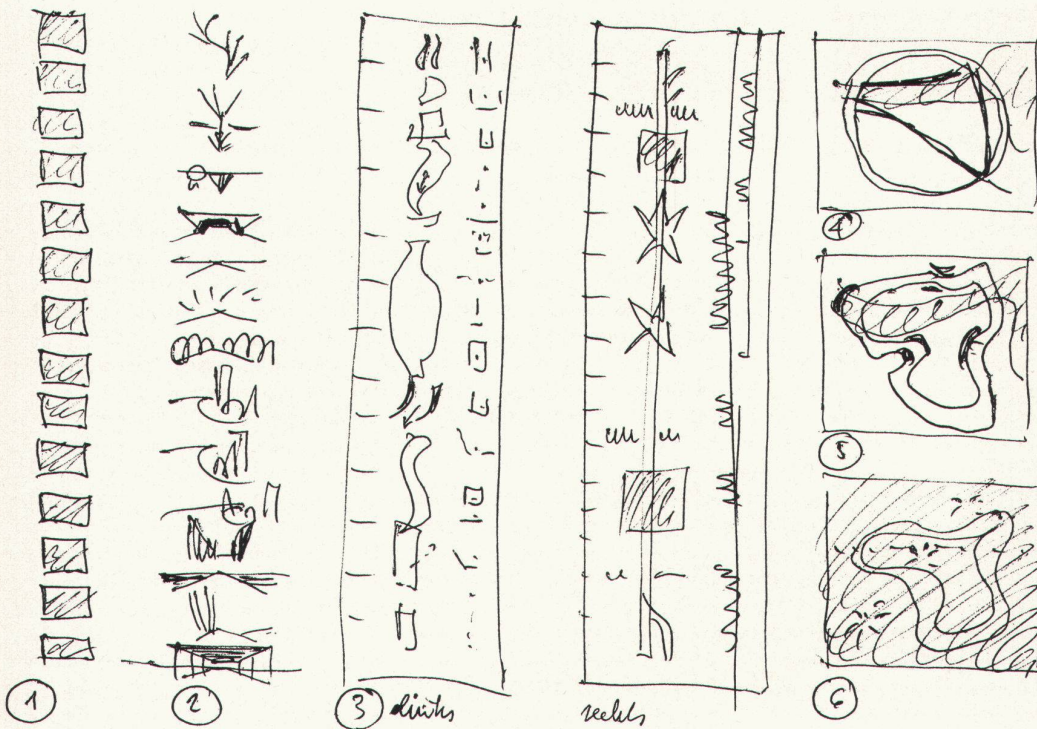 4
5
1
2
3 links
rechts
6